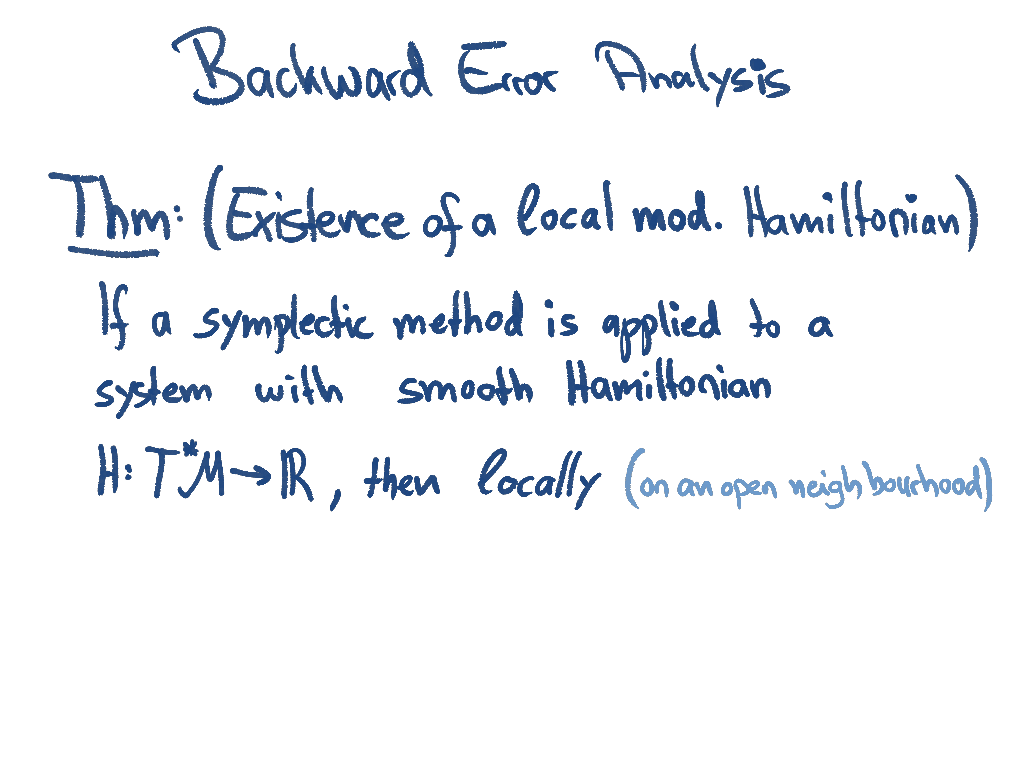 Backward Error Analysis
Thm: (Existence of a local mod. Hamiltonian)
If a symplectic method is applied to a
system with smooth Hamiltonian
H: T*M → ℝ, then locally (on an open neighbourhood)